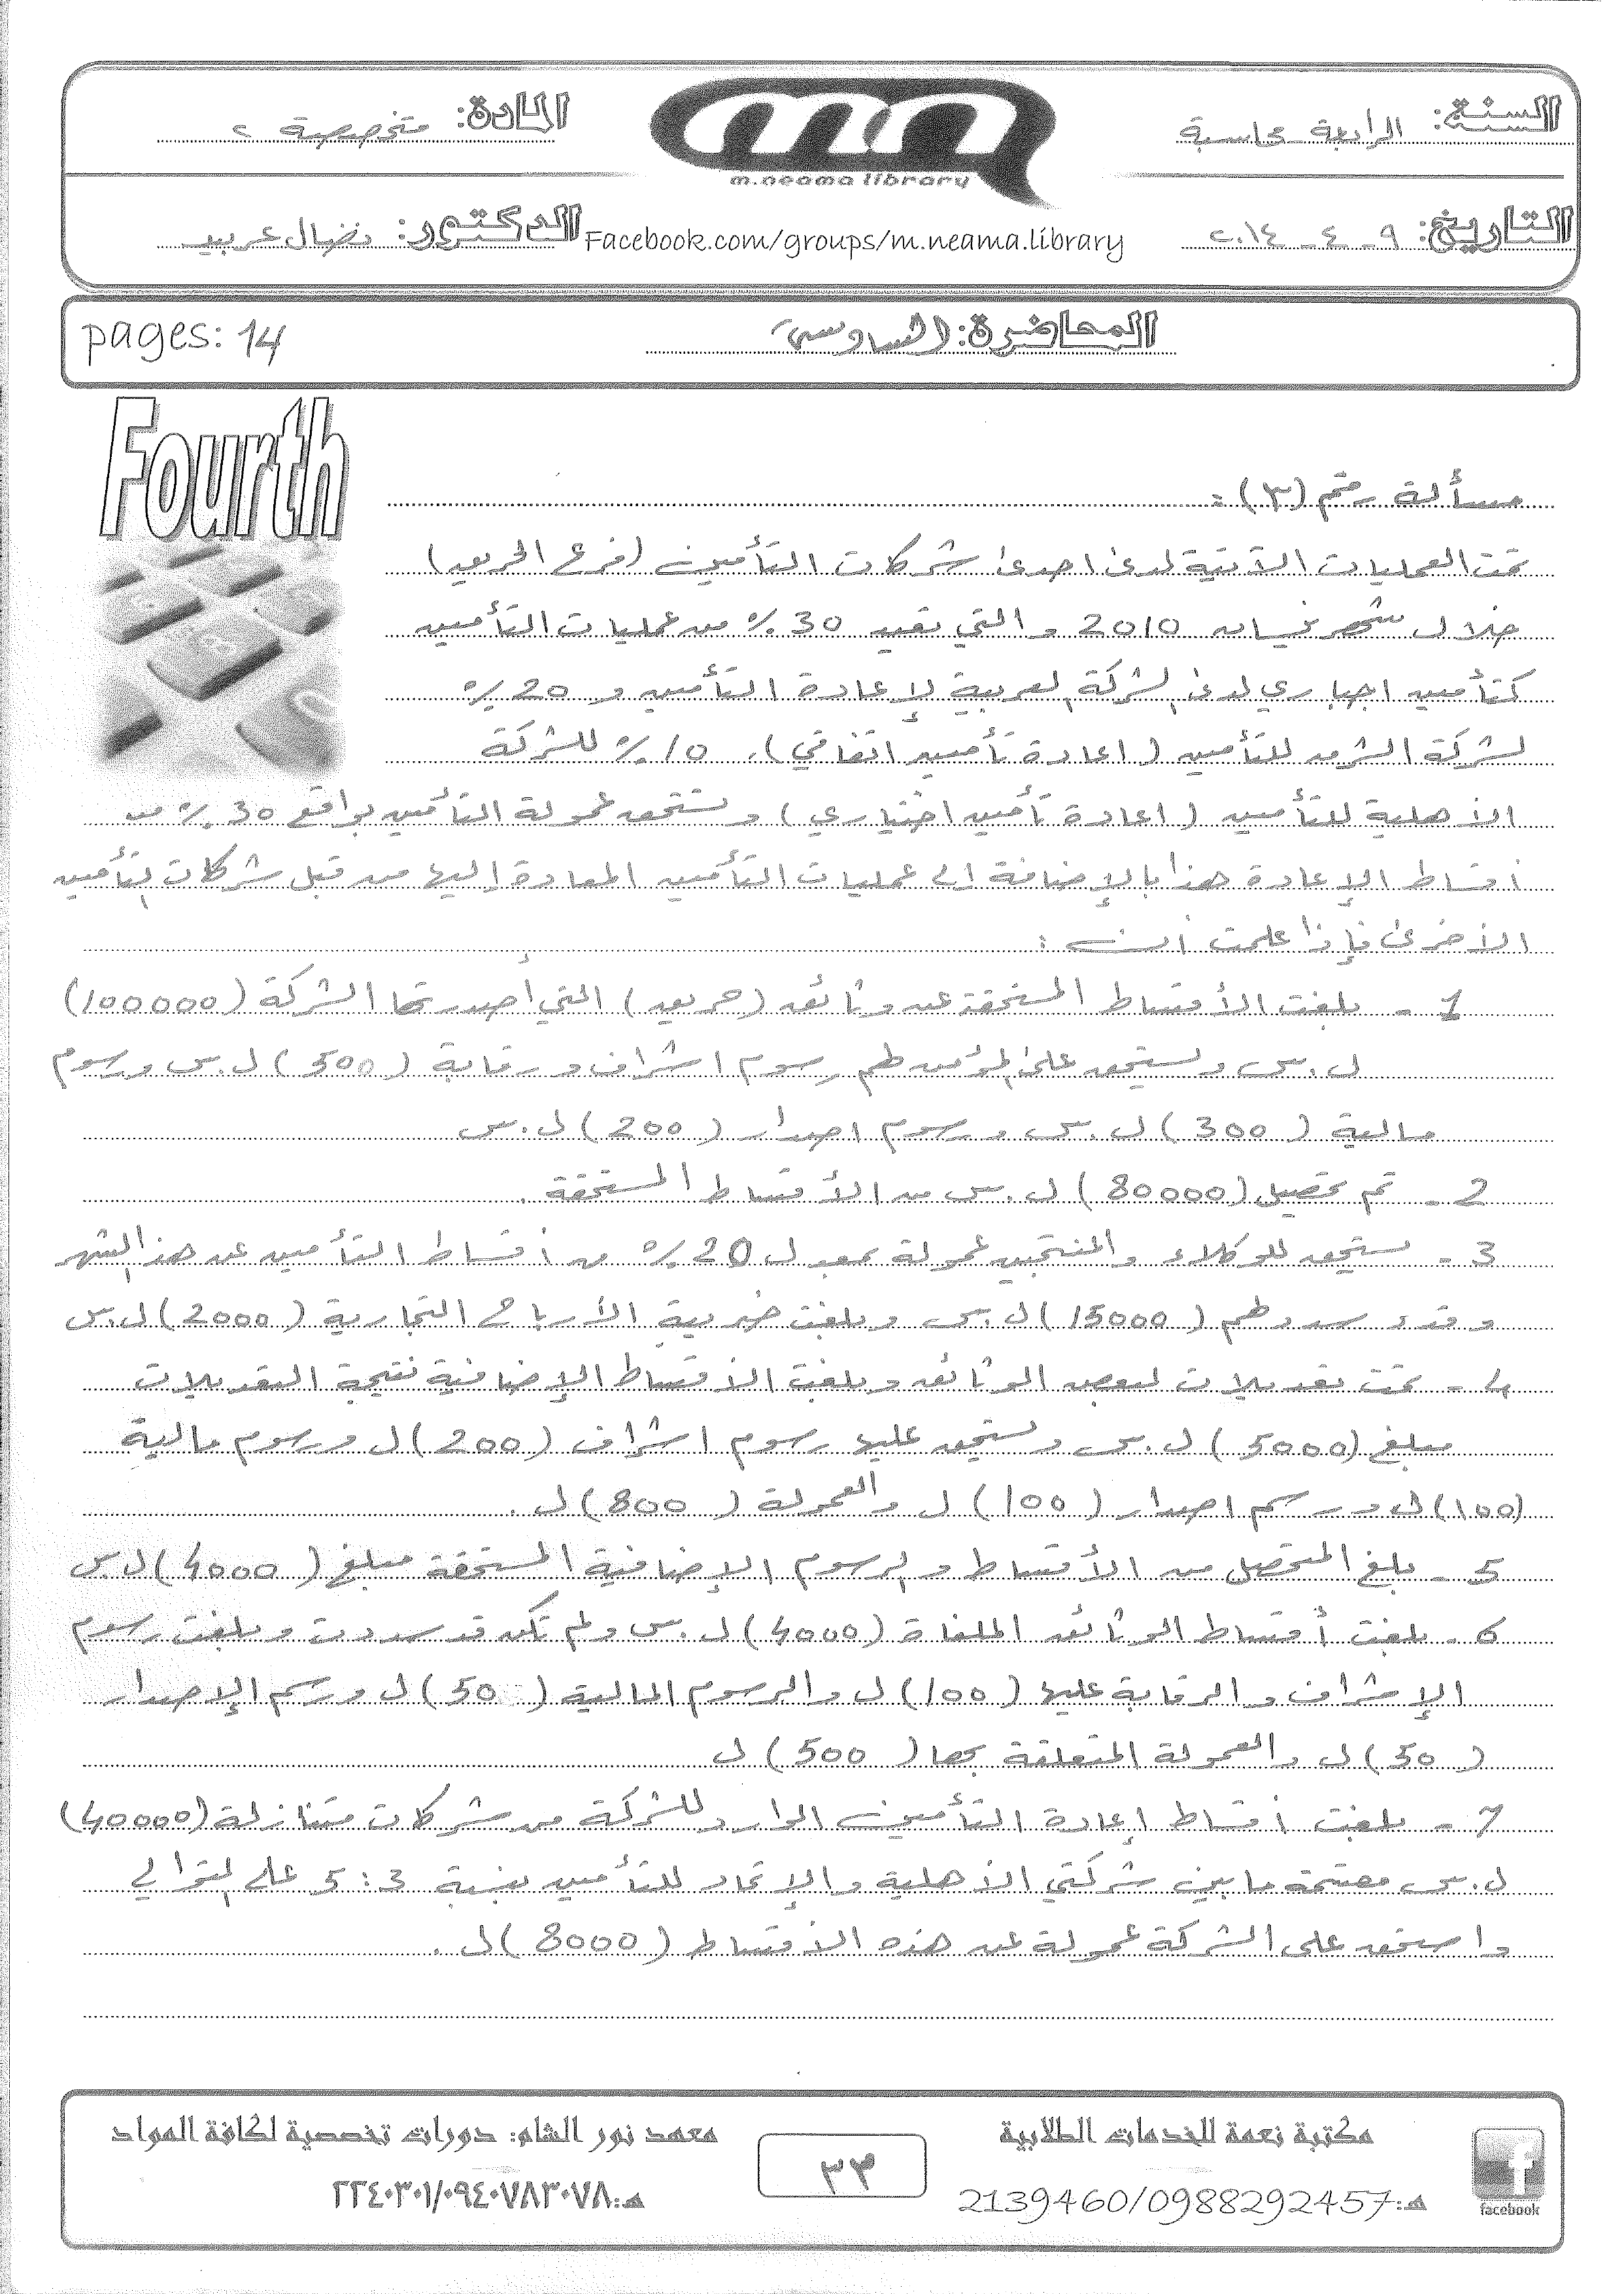 السنة: الرابعة محاسبة
المادة: متخصصة ٢
m.neama library
التاريخ: ٩ - ٤ - ٢٠١٤
Facebook.com/groups/m.neama.library
الدكتور: نضال عربيد
المحاضرة: السادسة
pages: 14
Fourth
مسألة رقم (٣):
تمت العمليات الآتية لدى احدى شركات التأمين (فرع الحريق)
خلال شهر نيسان 2010 والتي تعيد 30% من عمليات التأمين
كتأمين اجباري لدى الشركة العربية لإعادة التأمين و 20%
لشركة الشرق للتأمين (اعادة تأمين اتفاقي)، 10% للشركة
الأهلية للتأمين (اعادة تأمين اختياري) وتستحق عمولة التأمين بواقع 30% من
أقساط الإعادة هذا بالإضافة إلى عمليات التأمين المعادة إليها من قبل شركات التأمين
الأخرى فإذا علمت أن:
1 - بلغت الأقساط المستحقة عن وثائق (حريق) التي أصدرتها الشركة (100000)
ل.س ويستحق على المؤمن لهم رسوم اشراف ورقابة (500) ل.س ورسوم
مالية (300) ل.س ورسوم اصدار (200) ل.س
2 - تم تحصيل (80000) ل.س من الأقساط المستحقة.
3 - يستحق للوكلاء والمنتجين عمولة بمعدل 20% من أقساط التأمين عن هذا الشهر
وقد سدد لهم (15000) ل.س وبلغت ضريبة الأرباح التجارية (2000) ل.س
4 - تمت تعديلات لبعض الوثائق وبلغت الأقساط الإضافية نتيجة التعديلات
مبلغ (5000) ل.س ويستحق عليها رسوم اشراف (200) ل ورسوم مالية
(100) ل ورسم اصدار (100) ل والعمولة (800) ل.
5 - بلغ المتحصل من الأقساط والرسوم الإضافية المستحقة مبلغ (4000) ل.س
6 - بلغت أقساط الوثائق الملغاة (4000) ل.س ولم تكن قد سددت وبلغت رسوم
الإشراف والرقابة عليها (100) ل والرسوم المالية (50) ل ورسم الإصدار
(50) ل والعمولة المتعلقة بها (500) ل
7 - بلغت أقساط إعادة التأمين الوارد للشركة من شركات متنازلة (40000)
ل.س مقسمة ما بين شركتي الأهلية والإتحاد للتأمين بنسبة 3 : 5 على التوالي
واستحق على الشركة عمولة عن هذه الأقساط (8000) ل.
مكتبة نعمة للخدمات الطلابية
هـ: 2139460/0988292457
٣٣
معهد نور الشام: دورات تخصصية لكافة المواد
هـ: ٢٢٤٠٣٠١/٠٩٤٠٧٨٣٠٧٨
facebook